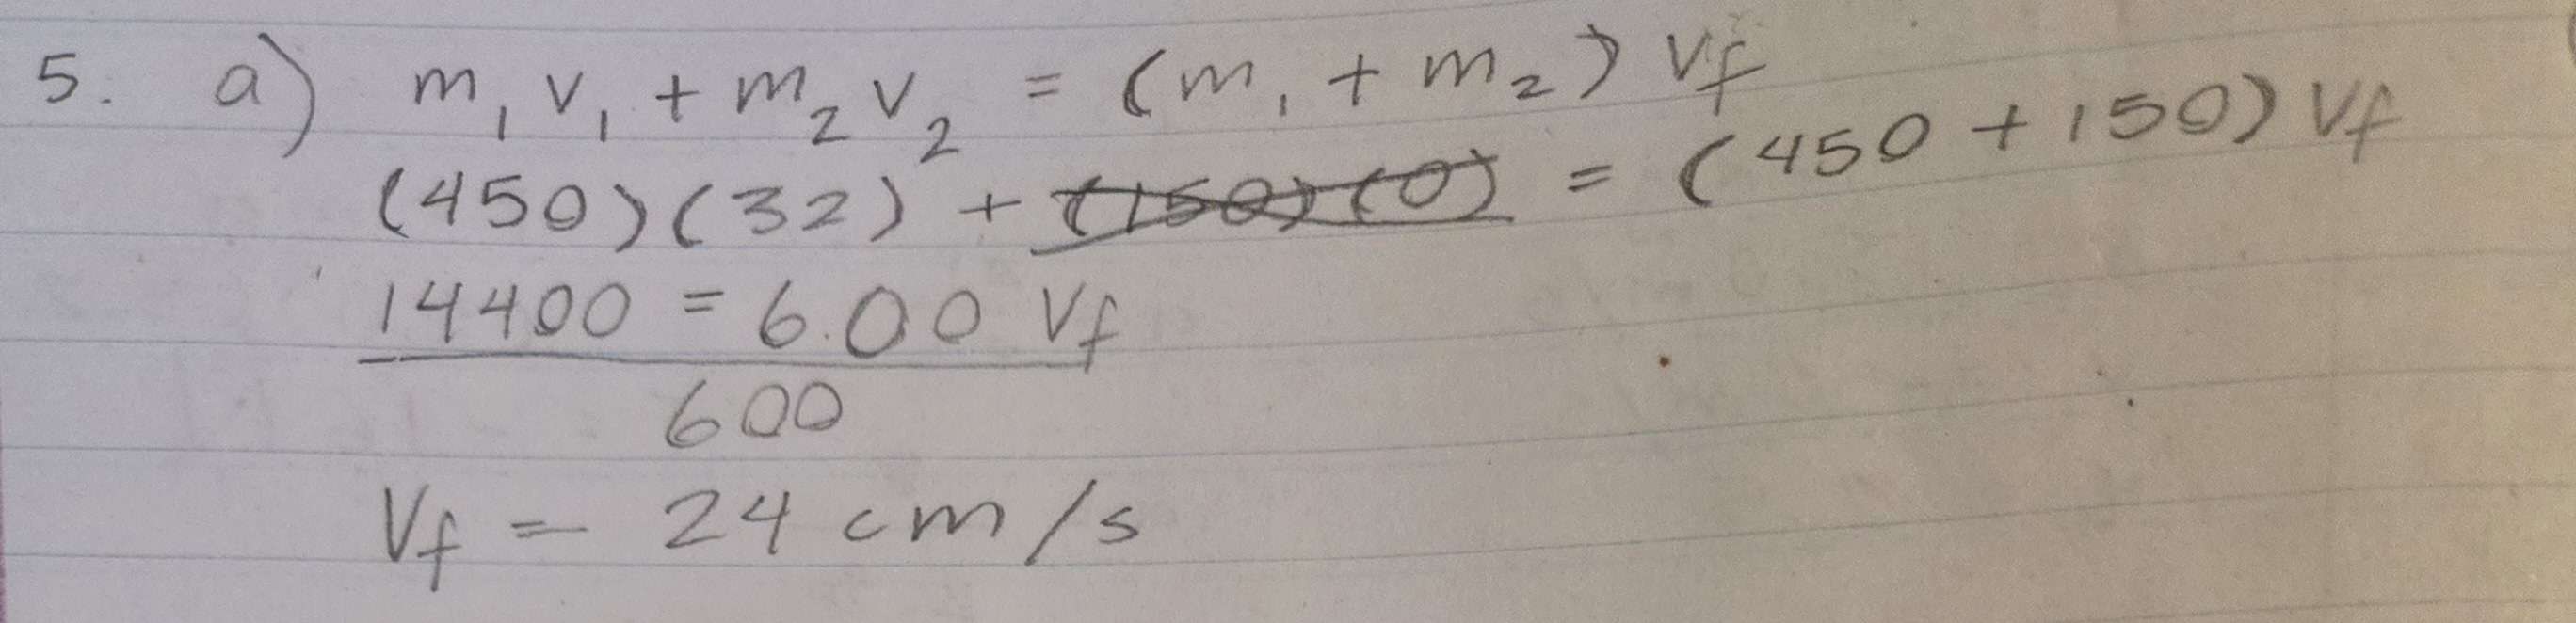 5. a) m₁v₁ + m₂v₂ = (m₁ + m₂) Vf
(450)(32) + (150)(0) = (450 + 150) Vf
14400 = 6.00 Vf
600
Vf = 24 cm/s